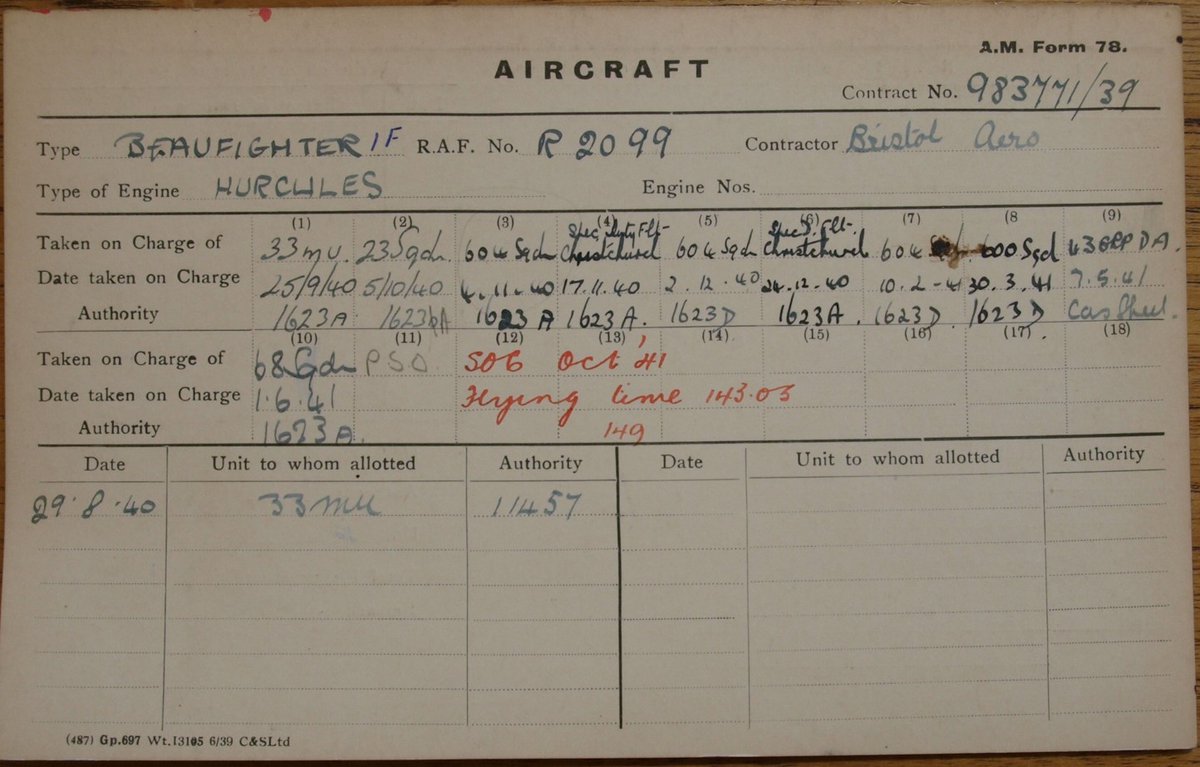 A.M. Form 78.
AIRCRAFT
Contract No. 983771/39
Type BEAUFIGHTER IF R.A.F. No. R 2099 Contractor Bristol Aero
Type of Engine HURCULES Engine Nos.
(1) (2) (3) (4) (5) (6) (7) (8 (9)
Taken on Charge of 33 mu. 23 Sqdn. 604 Sqdn Spec. Duty Flt- Christchurch 604 Sqdn Spec D. Flt-. Christchurch 604 600 Sqd 43 GRP D A.
Date taken on Charge 25/9/40 5/10/40 4.11.40 17.11.40 2.12.40 24.12.40 10.2-41 30.3.41 7.5.41
Authority 1623A 1623 A 1623 A 1623 A. 1623 D 1623A. 1623 D. 1623 D Cas
(10) (11) (12) (13) (14) (15) (16) (17) (18)
Taken on Charge of 68 Sqdn PSO. SOC Oct '41
Date taken on Charge 1.6.41 Flying time 143.05
Authority 1623A. 149
Date Unit to whom allotted Authority Date Unit to whom allotted Authority
29.8.40 33 mu 11457
(487) Gp.697 Wt.13105 6/39 C&SLtd